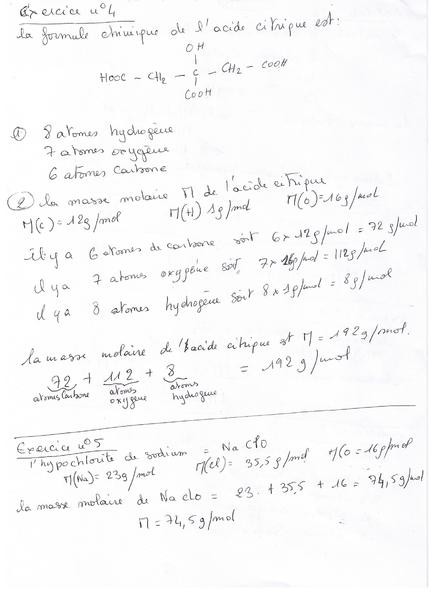 Exercice n°4
la formule chimique de l'acide citrique est:
OH
HOOC - CH2 - C - CH2 - COOH
COOH
① 8 atomes hydrogène
7 atomes oxygène
6 atomes Carbone
② la masse molaire M de l'acide citrique
M(C) = 12g/mol M(H) 1g/mol M(O) = 16g/mol
il y a 6 atomes de carbone soit 6 x 12g/mol = 72 g/mol
il y a 7 atomes oxygène soit, 7 x 16g/mol = 112g/mol
il y a 8 atomes hydrogène soit 8 x 1g/mol = 8g/mol
la masse molaire de l'acide citrique est M = 192g/mol.
72 + 112 + 8 = 192 g/mol
atomes Carbone atomes oxygène atoms hydrogène
Exercice n°5
l'hypochlorite de sodium = NaClO
M(Na) = 23g/mol M(Cl) = 35,5g/mol M(O = 16g/mol
la masse molaire de NaClo = 23. + 35,5 + 16 = 74,5g/mol
M = 74,5g/mol